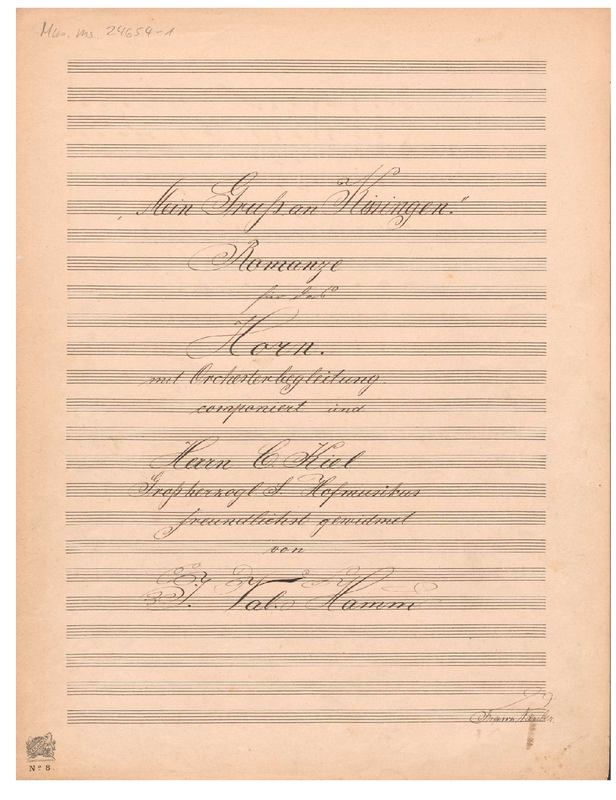 Mus. ms. 24654-1
„Mein Gruß an Kissingen."
Romanze
für das
Horn.
mit Orchesterbegleitung.
componiert und
Herrn C. Kiel
Großherzogl. S. Hofmusikus
freundlichst gewidmet
von
J. Val. Hamm
No 8.